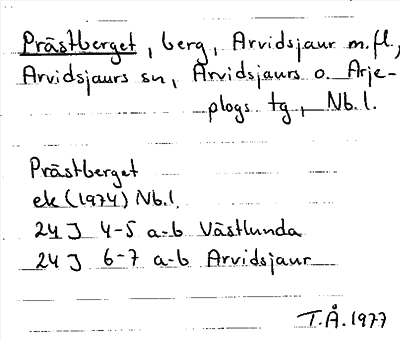 Prästberget, berg, Arvidsjaur m.fl.,
Arvidsjaurs sn, Arvidsjaurs o. Arje-
plogs tg, Nb.l.
Prästberget
ek (1974) Nb.l.
24 J 4-5 a-b Västlunda
24 J 6-7 a-b Arvidsjaur
T.Å. 1977